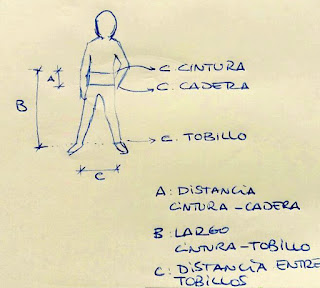 C. CINTURA
A
C. CADERA
B
C. TOBILLO
C
A: DISTANCIA
CINTURA-CADERA
B: LARGO
CINTURA-TOBILLO
C: DISTANCIA ENTRE
TOBILLOS